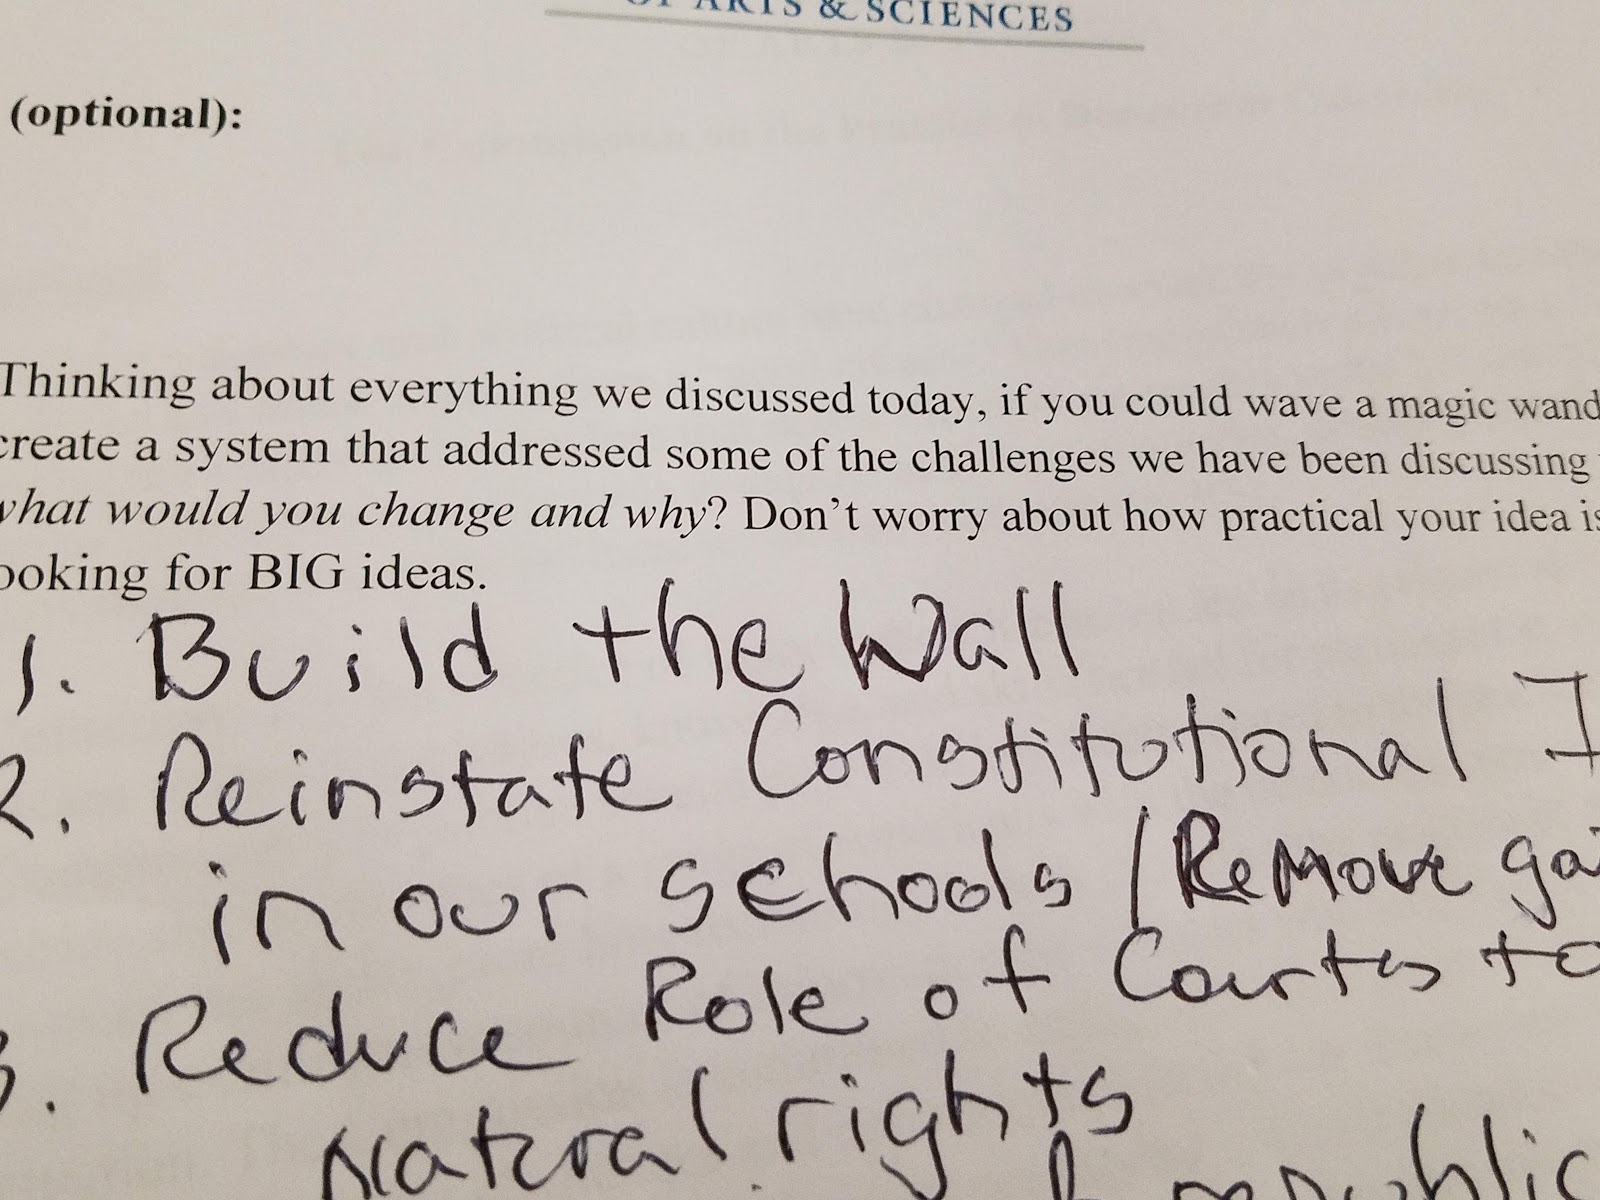 OF ARTS & SCIENCES
(optional):
Thinking about everything we discussed today, if you could wave a magic wand
create a system that addressed some of the challenges we have been discussing
what would you change and why? Don't worry about how practical your idea is
ooking for BIG ideas.
1. Build the Wall
2. Reinstate Constitutional
in our schools / Remove
3. Reduce Role of Courts to
Natural rights